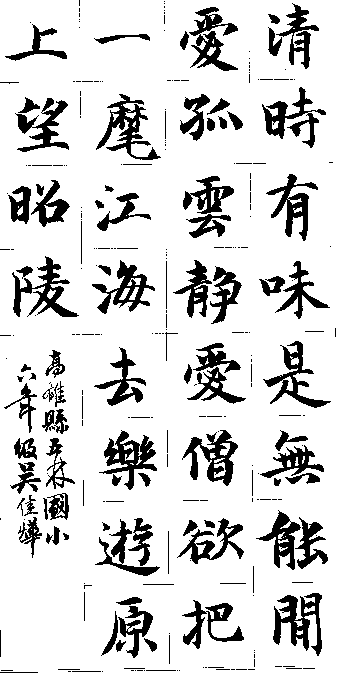 清時有味是無能閒
愛孤雲靜愛僧欲把
一麾江海去樂遊原
上望昭陵
高雄縣五林國小
六年級吳佳燁